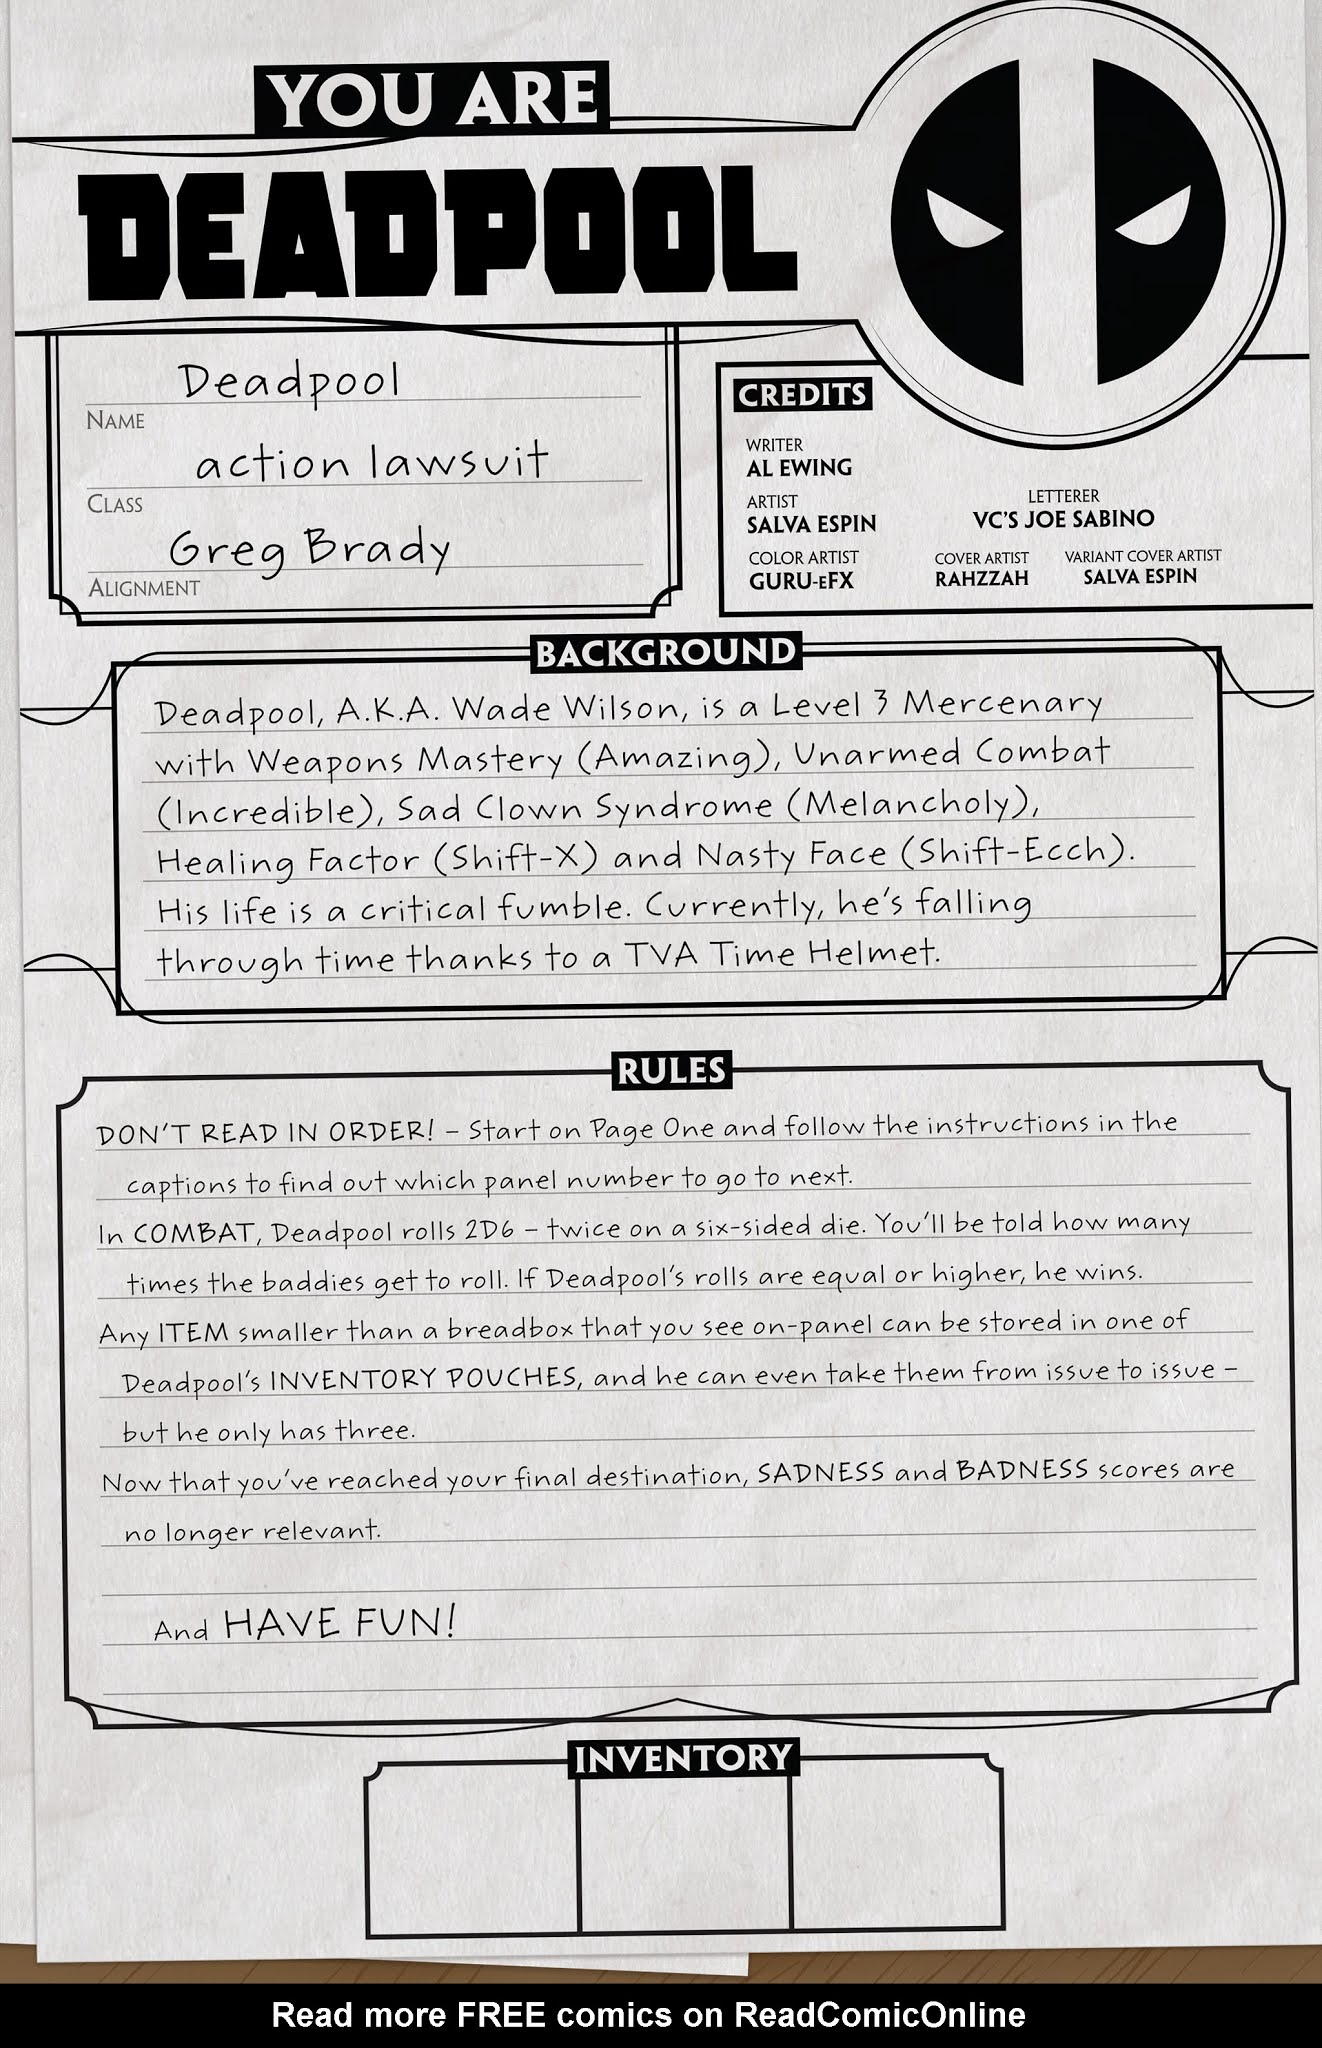 YOU ARE
DEADPOOL
Deadpool
NAME
action lawsuit
CLASS
Greg Brady
ALIGNMENT
CREDITS
WRITER
AL EWING
ARTIST
SALVA ESPIN
LETTERER
VC'S JOE SABINO
COLOR ARTIST
GURU-eFX
COVER ARTIST
RAHZZAH
VARIANT COVER ARTIST
SALVA ESPIN
BACKGROUND
Deadpool, A.K.A. Wade Wilson, is a Level 3 Mercenary
with Weapons Mastery (Amazing), Unarmed Combat
(Incredible), Sad Clown Syndrome (Melancholy),
Healing Factor (Shift-X) and Nasty Face (Shift-Ecch).
His life is a critical fumble. Currently, he's falling
through time thanks to a TVA Time Helmet.
RULES
DON'T READ IN ORDER! – Start on Page One and follow the instructions in the
captions to find out which panel number to go to next.
In COMBAT, Deadpool rolls 2D6 – twice on a six-sided die. You'll be told how many
times the baddies get to roll. If Deadpool's rolls are equal or higher, he wins.
Any ITEM smaller than a breadbox that you see on-panel can be stored in one of
Deadpool's INVENTORY POUCHES, and he can even take them from issue to issue –
but he only has three.
Now that you've reached your final destination, SADNESS and BADNESS scores are
no longer relevant.
And HAVE FUN!
INVENTORY
Read more FREE comics on ReadComicOnline